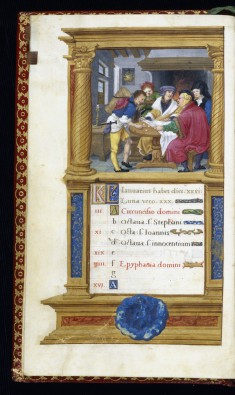 KL Januarius habet dies. xxxi.
Luna vero. xxx.
iii A Circuncisio domini
b Octaua s. Stephani
xi c Octa. s. Ioannis
d Octaua s. innocentium
xix e
viii f Epyphania domini
g
xvi A